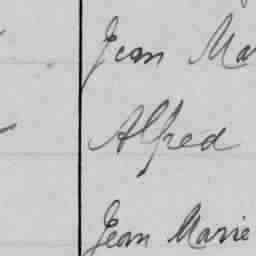 Jean Ma
Alfred
Jean Marie